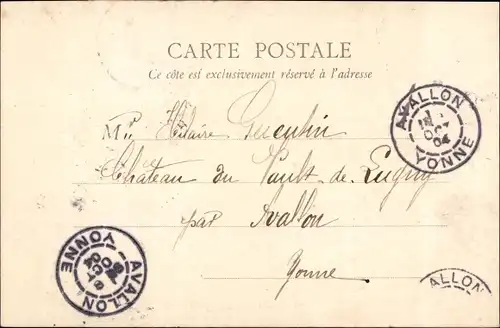 CARTE POSTALE
Ce côté est exclusivement réservé à l'adresse
Mr Hilaire Quentin
Château du Vault-de-Lugny
par Avallon
Yonne
AVALLON
OCT
04
YONNE
AVALLON
OCT
04
YONNE
ALLON